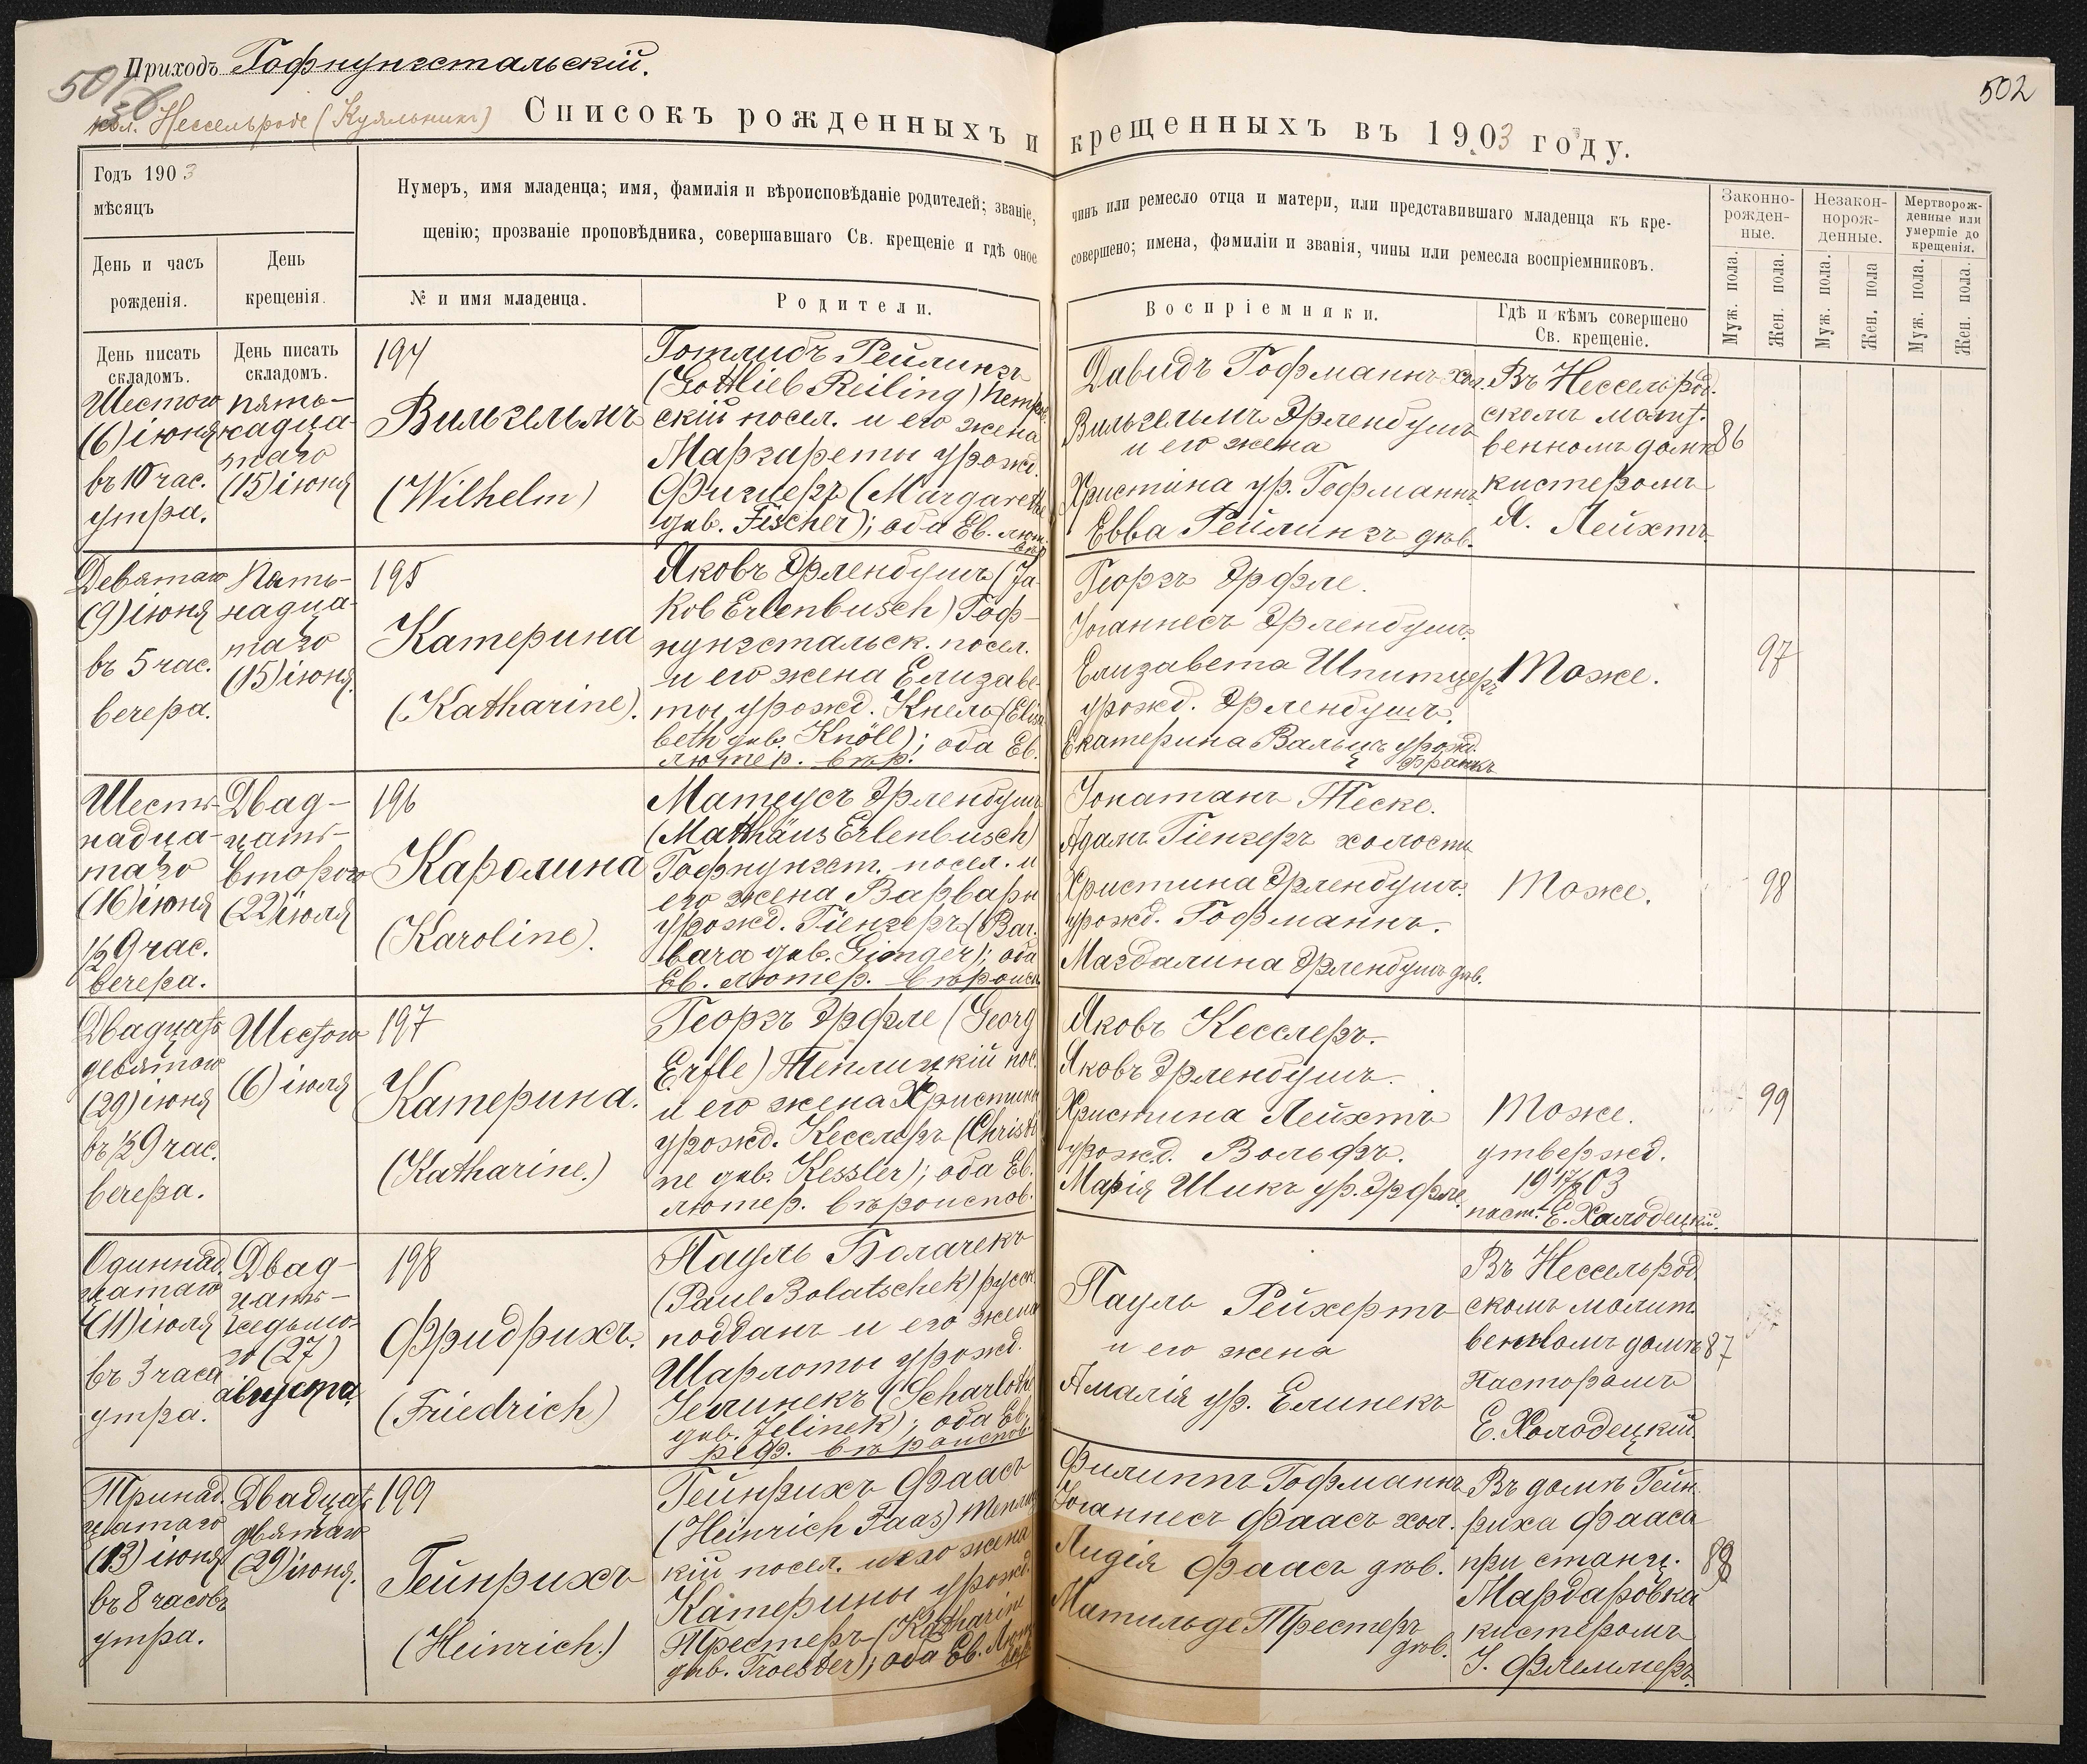 Приходъ Гофнунгстальскій.
501
502
кол. Нессельроде (Куяльникъ)
Списокъ рожденныхъ и крещенныхъ въ 1903 году.
Годъ 1903
мѣсяцъ
День и часъ
рожденія.
День
крещенія.
Нумеръ, имя младенца; имя, фамилія и вѣроисповѣданіе родителей; званіе, чинъ или ремесло отца и матери, или представившаго младенца къ кре-
щенію; прозваніе проповѣдника, совершавшаго Св. крещеніе и гдѣ оное совершено; имена, фамиліи и званія, чины или ремесла воспріемниковъ.
№ и имя младенца.
Родители.
Воспріемники.
Гдѣ и кѣмъ совершено
Св. крещеніе.
Законно-
рожден-
ные.
Незакон-
норож-
денные.
Мертворож-
денные или
умершіе до
крещенія.
Муж. пола.
Жен. пола.
Муж. пола.
Жен. пола
Муж. пола.
Жен. пола.
День писать
складомъ.
День писать
складомъ.
Шестого
(6) іюня
въ 10 час.
утра.
пять-
надца-
таго
(15) іюня
194
Вильгельмъ
(Wilhelm)
Готлибъ Рейлингъ
(Gottlieb Reiling)
скій посел. и его жена
Маргареты урожд.
Фишеръ (Margarethe
gеb. Fischer); оба Ев. лют.
Давидъ Гофманнъ хол.
Вильгельмъ Эрленбушъ
и его жена
Христина ур. Гофманнъ
Евва Рейлингъ дѣв.
Въ Нессельрод.
скомъ молит.
венномъ домѣ
кистеромъ
Я. Лейхтъ
86
Девятаго
(9) іюня
въ 5 час.
вечера.
Пять-
надца-
таго
(15) іюня.
195
Катерина
(Katharine).
Яковъ Эрленбушъ (Ja-
kob Erlenbusch) Гоф-
нунгстальск. посел.
и его жена Елизаве-
ты урожд. Кнель (Elisa
beth geb. Knöll); оба Ев.
лютер. вѣр.
Георгъ Эрфле.
Іоганнесъ Эрленбушъ.
Елизавета Шпитцеръ
урожд. Эрленбушъ.
Екатерина Вальцъ урожд.
Франкъ
Тоже.
97
Шест-
надца-
таго
(16) іюня
½ 9 час.
вечера.
Двад-
цать-
второго
(22) іюля
196
Каролина
(Karoline).
Матеусъ Эрленбушъ
(Matthäus Erlenbusch)
Гофнунгст. посел. и
его жена Варвары
урожд. Гіенгеръ (Bar-
bara geb. Gienger); оба
Ев. лютер. вѣроисп.
Іонатанъ Теске.
Адамъ Гіенгеръ холост.
Христина Эрленбушъ.
урожд. Гофманнъ.
Магдалина Эрленбушъ дѣв.
Тоже.
98
Двадцать
девятаго
(29) іюня
въ ½ 9 час.
вечера.
Шестого
(6) іюля
197
Катерина.
(Katharine.)
Георгъ Эрфле (Georg
Erfle) Теплицкій пос.
и его жена Христина
урожд. Кесслеръ (Christi
ne geb. Kessler); оба Ев.
лютер. вѣроиспов.
Яковъ Кесслеръ.
Яковъ Эрленбушъ.
Христина Лейхтъ
урожд. Вольфъ.
Марія Шикъ ур. Эрфле.
Тоже.
утвержд.
паст. Е. Холодецкій.
99
Одиннад.
цатаго
(11) іюля
въ 3 часа
утра.
Двад-
цать-
седьмо-
го (27)
августа
198
Фридрихъ.
(Friedrich)
Пауль Болачекъ
(Paul Bolatschek) русск.
подданъ и его жена
Шарлоты урожд.
Іелинекъ (Scharlotte
geb. Jelinek); оба Ев.
реф. вѣроиспов.
Пауль Рейхертъ
и его жена
Амалія ур. Елинекъ
Въ Нессельрод.
скомъ молит
венномъ домѣ
Пасторомъ
Е. Холодецкій
87
Тринад.
цатаго
(13) іюня
въ 8 часовъ
утра.
Двадцать
девятаго
(29) іюня.
199
Гейнрихъ
(Heinrich.)
Гейнрихъ Фаасъ
(Heinrich Faas) Теплиц
кій посел. и его жена
Катерины урожд.
Трестеръ (Katharine
geb. Troester); оба Ев. Лют.
Филиппъ Гофманнъ
Іоганнесъ Фаасъ хол.
Лидія Фаасъ дѣв.
Матильде Трестеръ
дѣв.
Въ домѣ Гейн.
риха Фааса
при станц.
Мардаровка
кистеромъ
І. Флеммеръ.
88